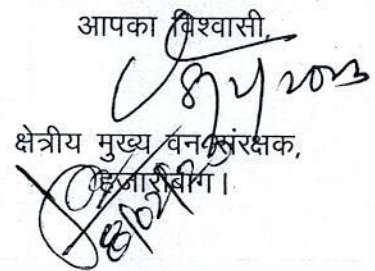 आपका विश्वासी,
क्षेत्रीय मुख्य वन संरक्षक,
हजारीबाग।